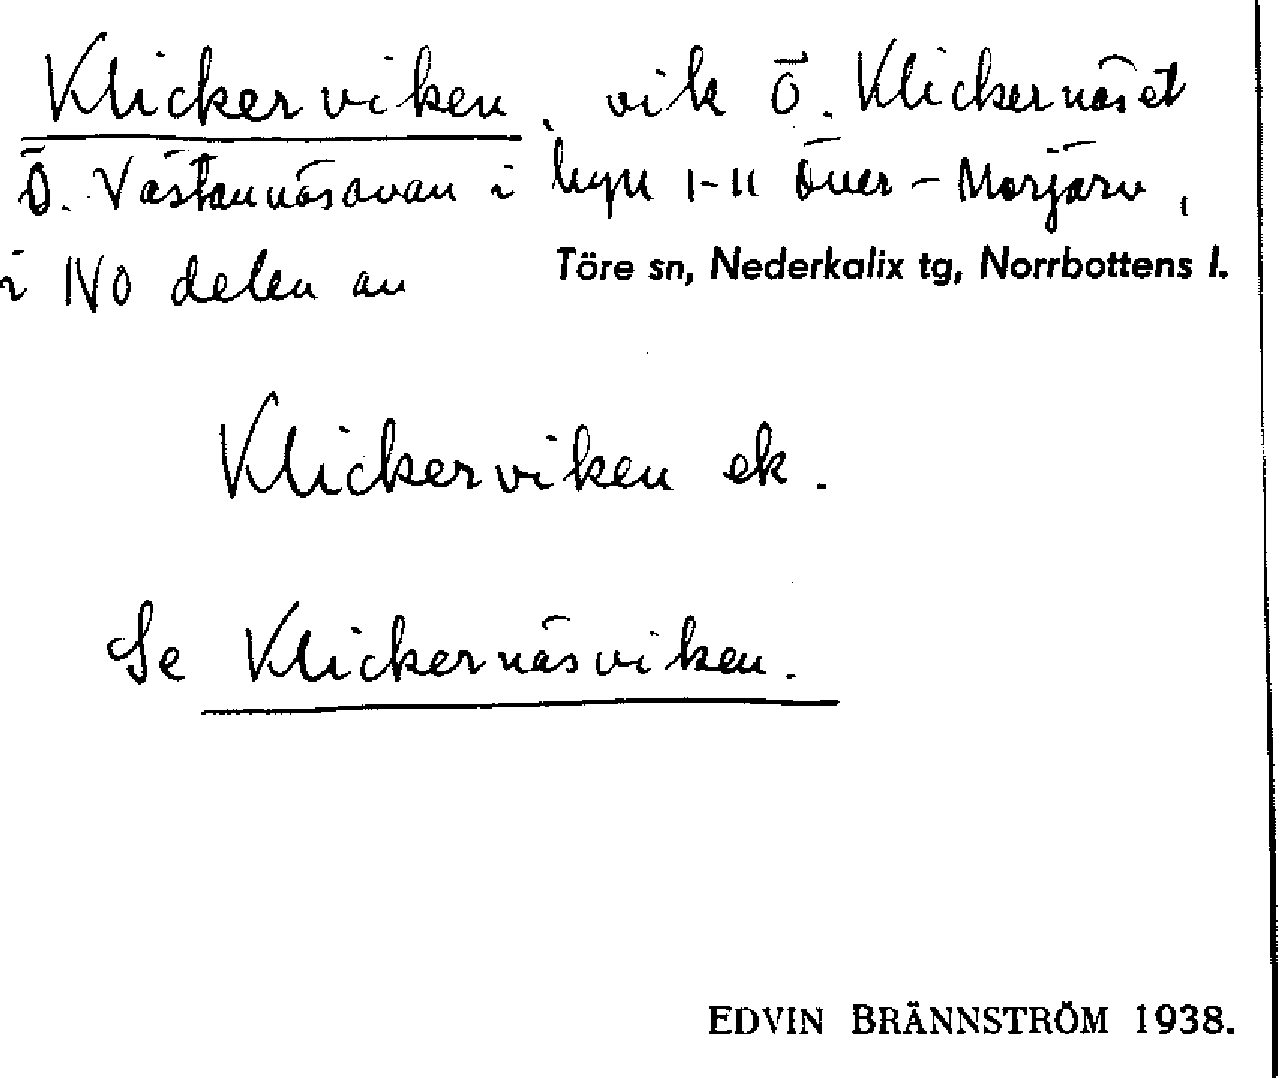 Klickerviken, vik Ö. Klickernäset
Ö. Västannäsavan i hyn 1-11 Över-Morjärv,
i NO delen av Töre sn, Nederkalix tg, Norrbottens l.
Klickerviken ek.
Se Klickernäsviken.
EDVIN BRÄNNSTRÖM 1938.